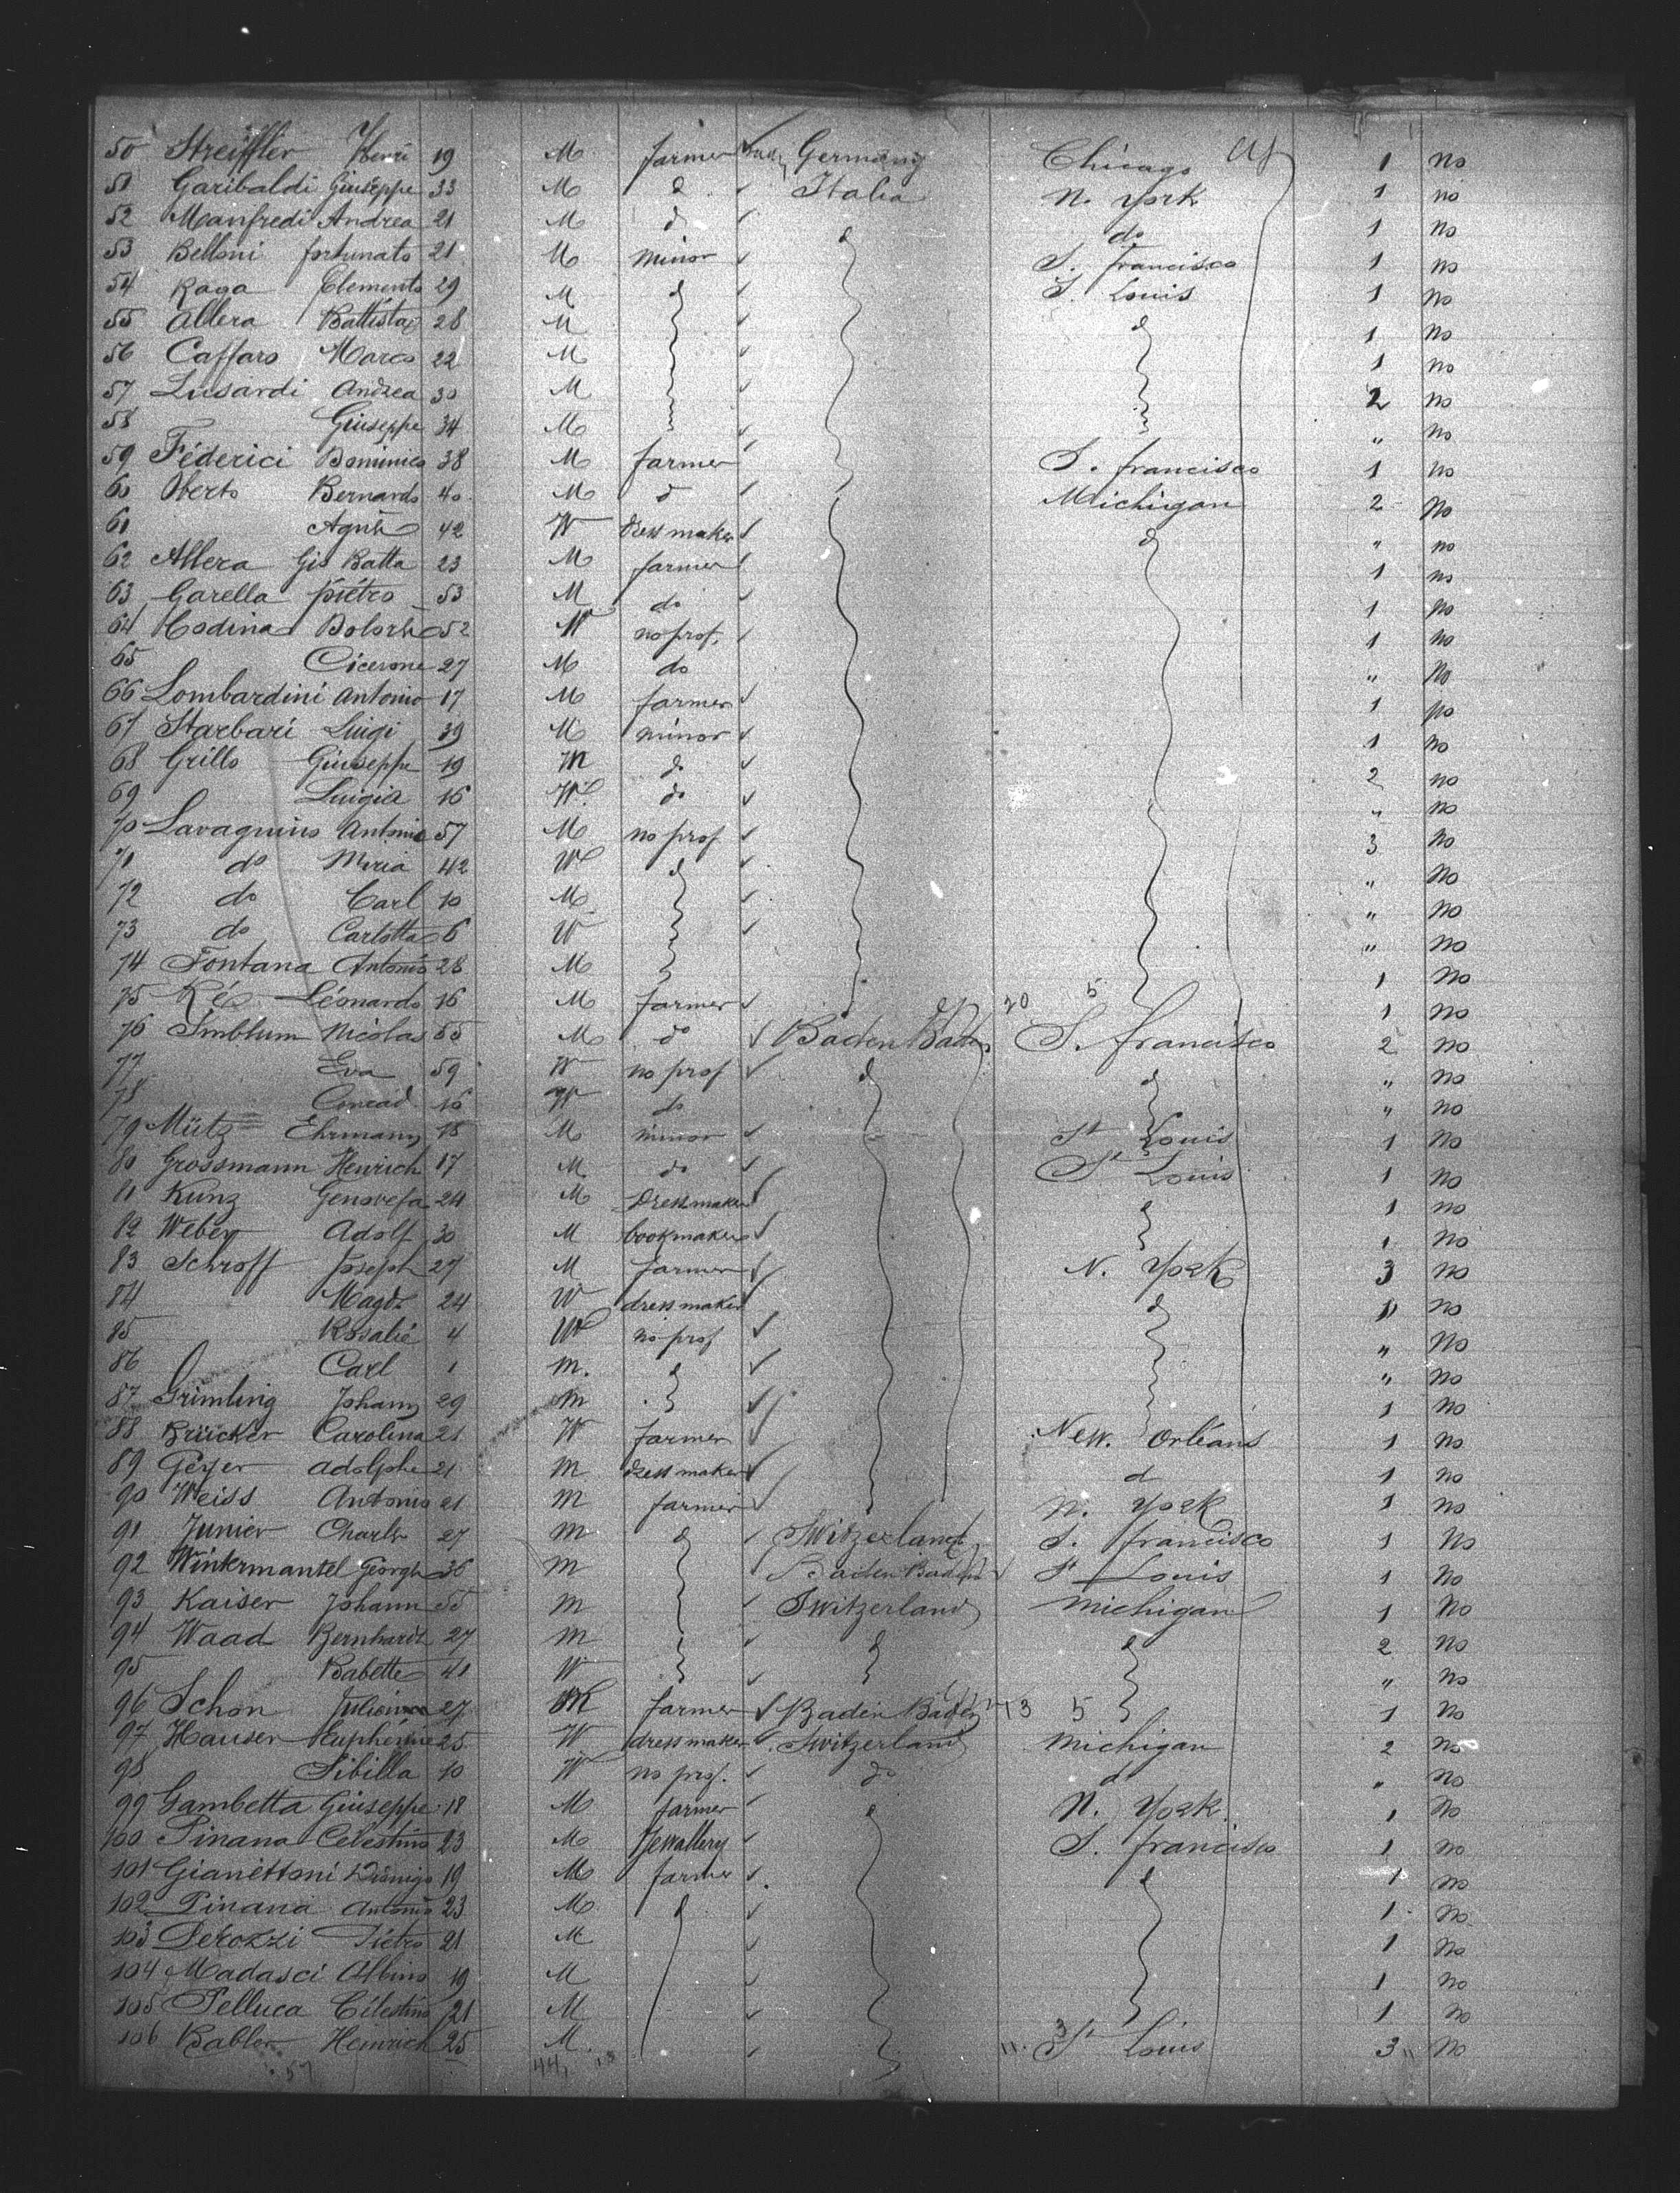 50 Streiffler Henri 19 M farmer Germany Chicago 1 no
51 Garibaldi Giuseppe 33 M d Italia N. York 1 no
52 Manfredi Andrea 21 M d do 1 no
53 Belloni fortunato 21 M minor d S. francisco 1 no
54 Raga Clemento 29 M d S. Louis 1 no
55 Allera Battista 28 M d 1 no
56 Caffaro Marco 22 M 1 no
57 Lusardi Andrea 30 M 2 no
58 Giuseppe 34 M " no
59 Féderici Dominico 38 M farmer S. francisco 1 no
60 Oberto Bernardo 40 M d Michigan 2 no
61 Agnès 42 W dressmaker d " no
62 Allera Gio Batta 23 M farmer 1 no
63 Garella piétro 53 M do 1 no
64 Codina 52 W no prof. 1 no
65 Cicerone 27 M do " no
66 Lombardini Antonio 17 M farmer 1 no
67 Starbari Luigi 39 M minor 1 no
68 Grillo Giuseppe 19 M d 2 no
69 Luigia 16 W do " no
70 Lavagnino Antonio 57 M no prof 3 no
71 do Miria 42 W d " no
72 do Carl 10 M " no
73 do Carlotta 6 W " no
74 Fontana Antonio 28 M 1 no
75 Ré Léonardo 16 M farmer 20 5 1 no
76 Imblum Nicolas 55 M d Baden Baden S. francisco 2 no
77 Eva 59 W no prof d d " no
78 Conrad 16 W do " no
79 Mütz Ehrmann 18 M minor St Louis 1 no
80 Grossmann Henrich 17 M d St Louis 1 no
81 Kunz Genovefa 24 M Dressmaker d 1 no
82 Weber Adolf 30 M bookmaker 1 no
83 Schroff Joseph 27 M farmer N. York 3 no
84 Magdt 24 W dressmaker d " no
85 Rosalie 4 W no prof " no
86 Carl 1 M. d " no
87 Grimling Johann 29 M 1 no
88 Brücker Carolina 21 W farmer New. Orléans 1 no
89 Geyer adolphe 21 M dressmaker d 1 no
90 Weiss Antonio 21 M farmer N. York 1 no
91 Junier Charles 27 M d Switzerland S. francisco 1 no
92 Winkermantel George 36 M Baden Baden St Louis 1 no
93 Kaiser Johann 55 M Switzerland michigan 1 no
94 Waad Bernhardt 27 M d d 2 no
95 Babette 41 W " no
96 Schon 27 M farmer Baden Baden 13 5 1 no
97 Hauser Euphémie 25 W dressmaker Switzerland michigan 2 no
98 Sibilla 10 W no prof. do d " no
99 Gambetta Giuseppe 18 M farmer d N. York 1 no
100 Pinana Célestino 23 M Jewallery S. francisco 1 no
101 Gianettoni 19 M farmer d 1 no
102 Pinana Antonio 23 M d 1 no
103 Perozzi Piétro 21 M 1 no
104 Madasci Albino 19 M 1 no
105 Pelluca Célestino 21 M 1 no
106 Babler Heinrich 25 M. St Louis 3 no
57 44 13